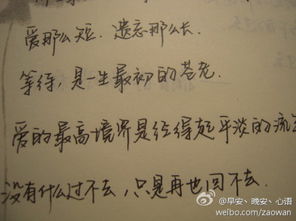 爱那么短，遗忘那么长.
等待，是一生最初的苍老.
爱的最高境界是经得起平淡的流
没有什么过不去，只是再也回不去.
@早安、晚安、心语
weibo.com/zaowan